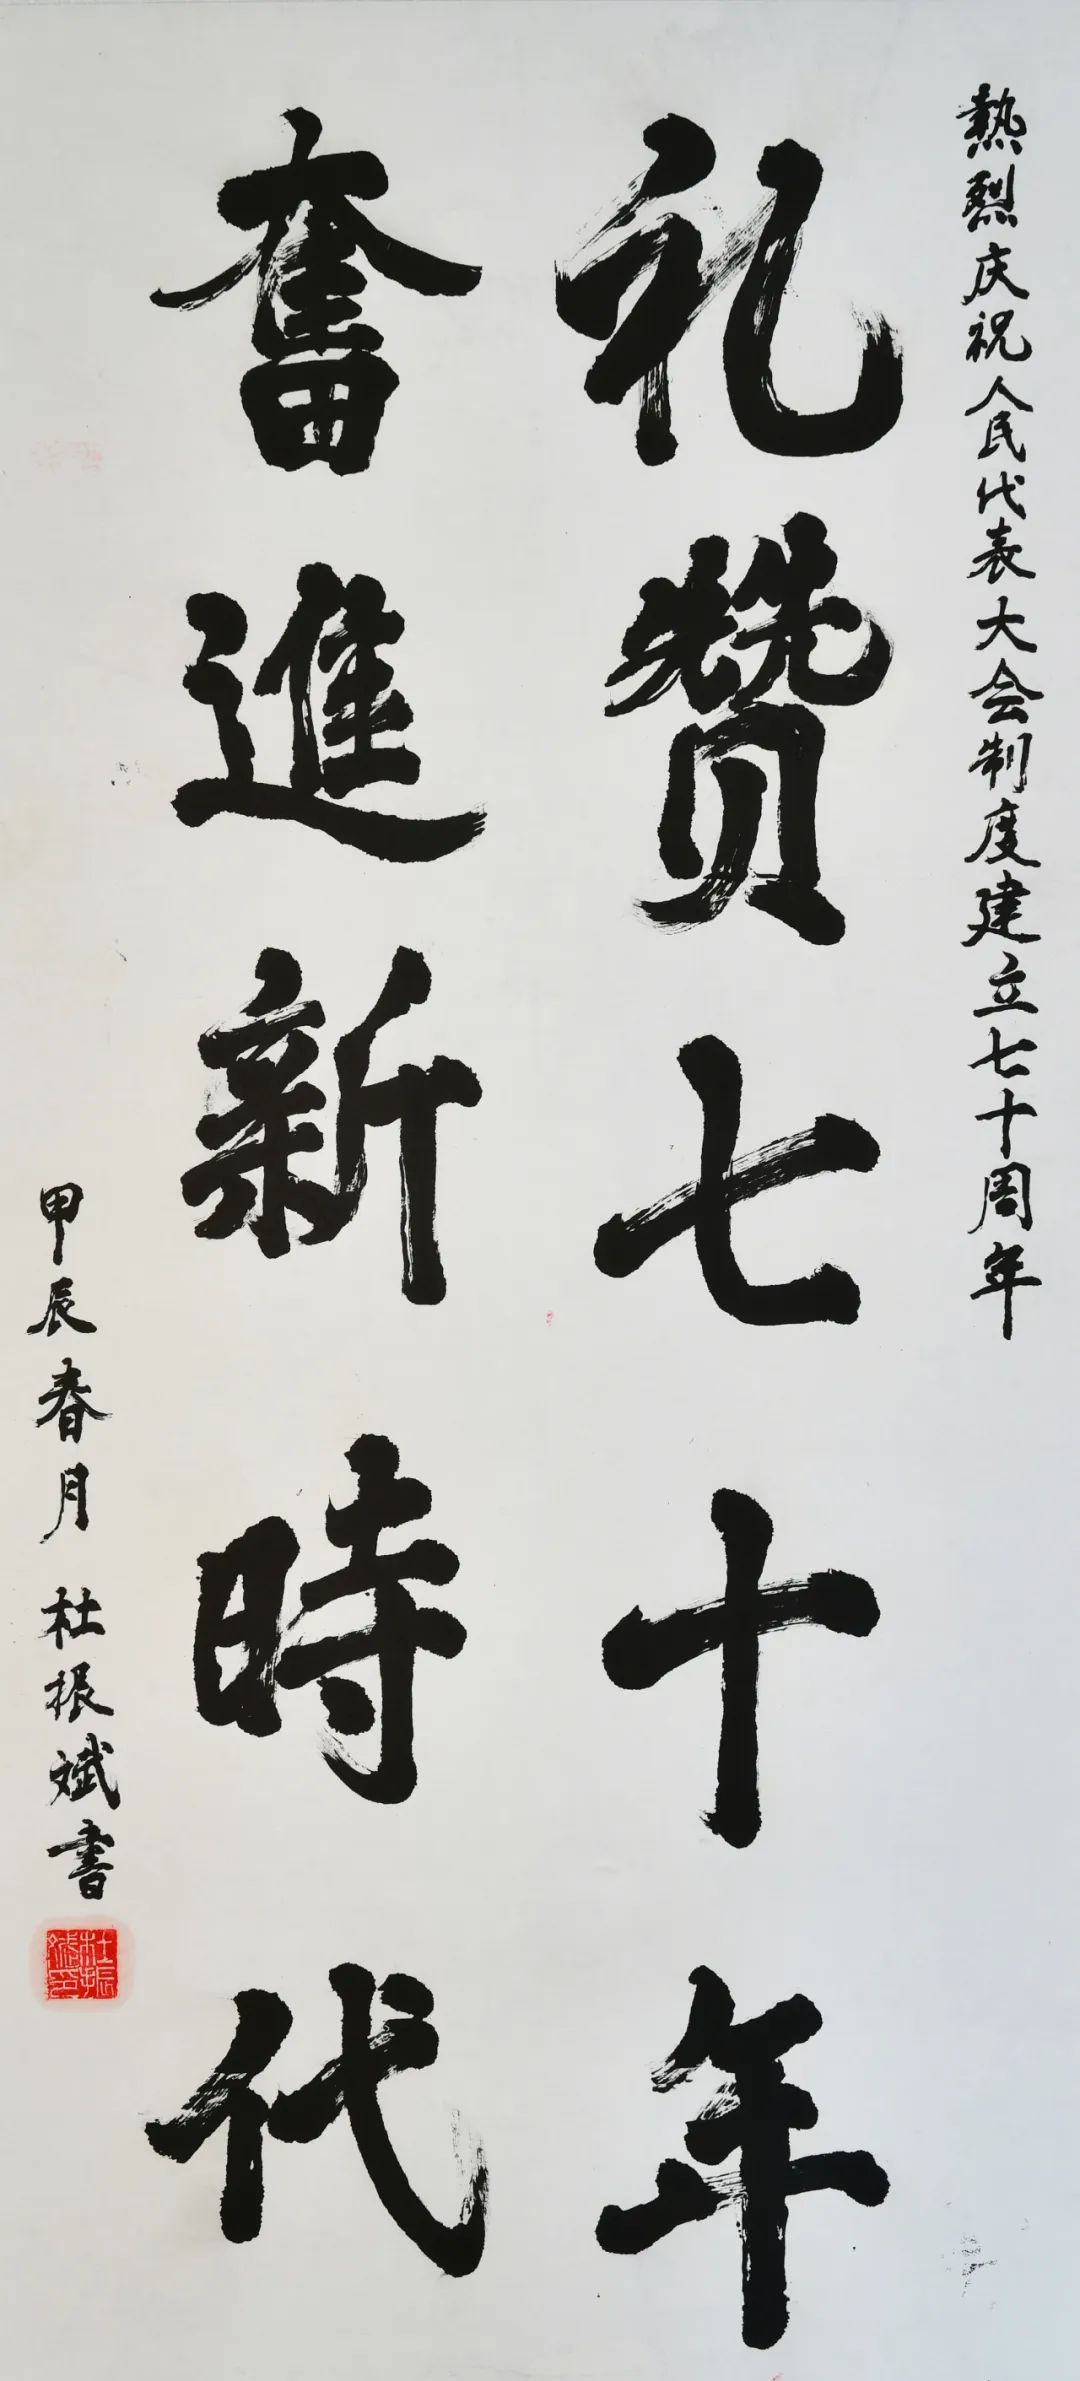 熱烈庆祝人民代表大会制度建立七十周年
礼赞七十年
奮進新時代
甲辰春月 杜振斌書